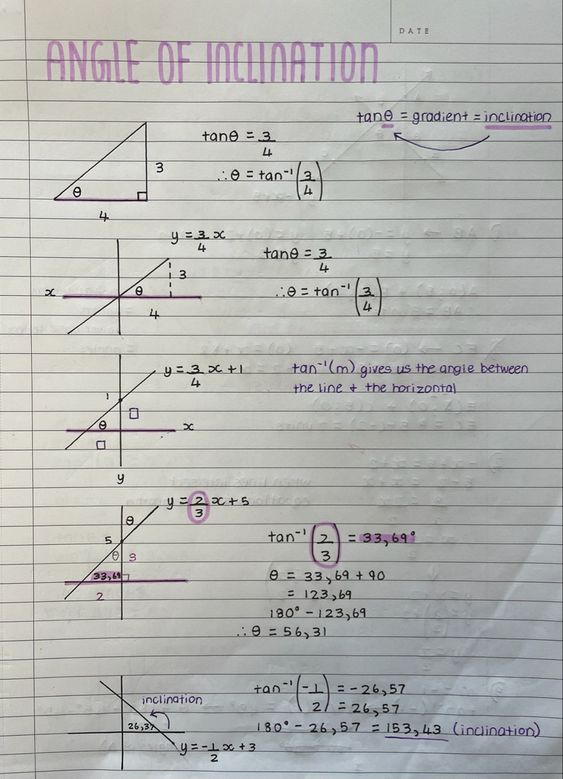 DATE
ANGLE OF INCLINATION
tanθ = gradient = inclination
tanθ = 3/4
∴θ = tan⁻¹(3/4)
3
θ
4
y = 3/4 x
tanθ = 3/4
∴θ = tan⁻¹(3/4)
3
x
θ
4
y = 3/4 x + 1
tan⁻¹(m) gives us the angle between
the line + the horizontal
1
θ
x
y
y = 2/3 x + 5
θ
5
θ 3
33,69
2
tan⁻¹(2/3) = 33,69°
θ = 33,69 + 90
= 123,69
180° - 123,69
∴ θ = 56,31
tan⁻¹(-1/2) = -26,57
= 26,57
180° - 26,57 = 153,43 (inclination)
inclination
26,37
y = -1/2 x + 3